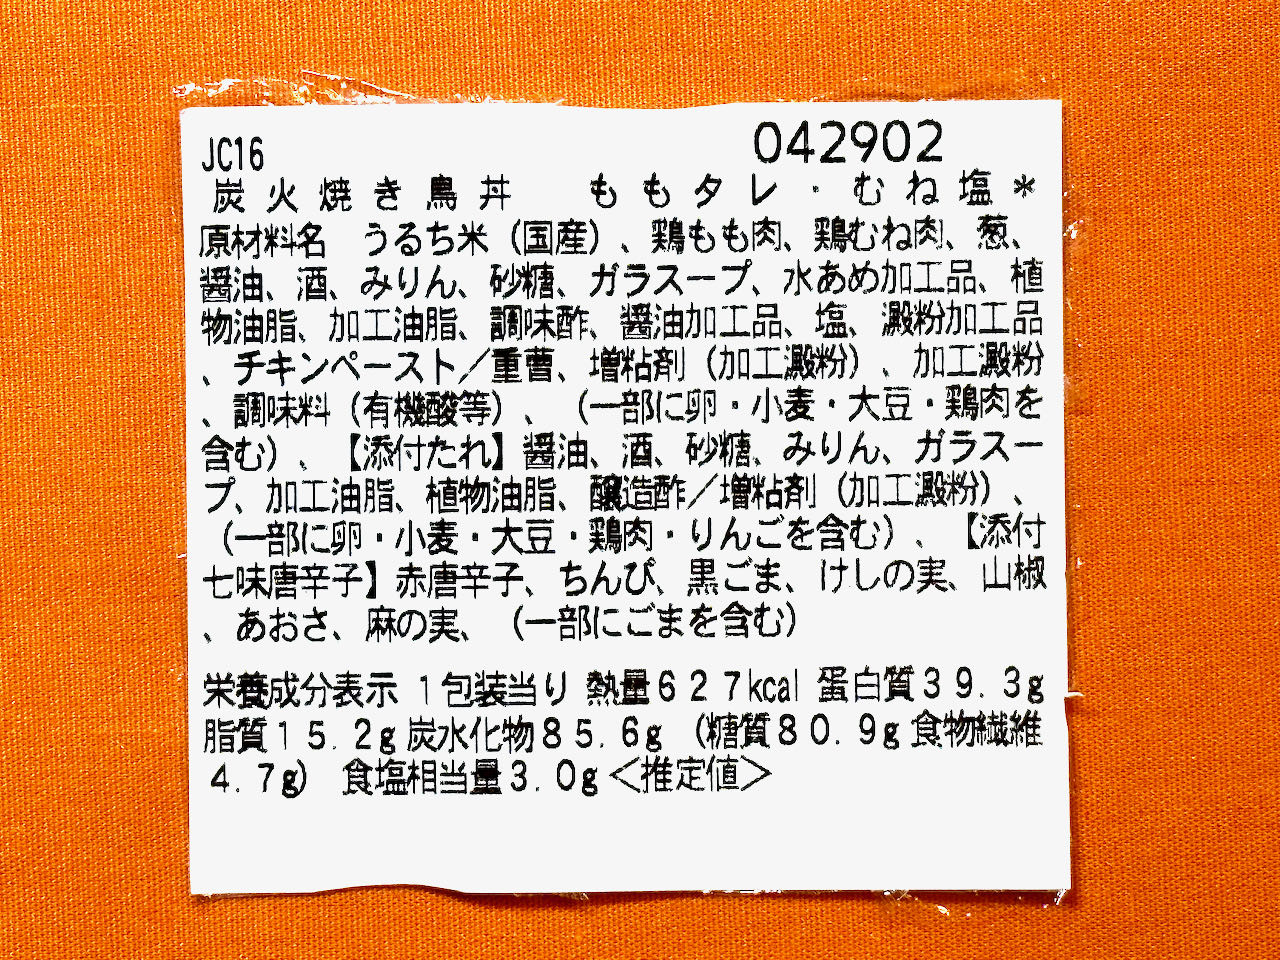 JC16
042902
炭火焼き鳥丼　ももタレ・むね塩＊
原材料名　うるち米（国産）、鶏もも肉、鶏むね肉、葱、
醤油、酒、みりん、砂糖、ガラスープ、水あめ加工品、植
物油脂、加工油脂、調味酢、醤油加工品、塩、澱粉加工品
、チキンペースト／重曹、増粘剤（加工澱粉）、加工澱粉
、調味料（有機酸等）、（一部に卵・小麦・大豆・鶏肉を
含む）、【添付たれ】醤油、酒、砂糖、みりん、ガラスー
プ、加工油脂、植物油脂、醸造酢／増粘剤（加工澱粉）、
（一部に卵・小麦・大豆・鶏肉・りんごを含む）、【添付
七味唐辛子】赤唐辛子、ちんぴ、黒ごま、けしの実、山椒
、あおさ、麻の実、（一部にごまを含む）
栄養成分表示 1包装当り 熱量627kcal 蛋白質39.3g
脂質15.2g 炭水化物85.6g （糖質80.9g 食物繊維
4.7g） 食塩相当量3.0g＜推定値＞